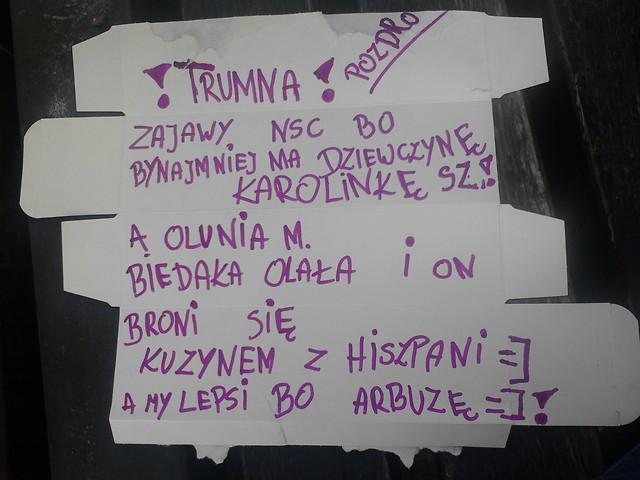 ! TRUMNA !
POZDRO
ZAJAWY NSC BO
BYNAJMNIEJ MA DZIEWCZYNĘ
KAROLINKĘ SZ!
A OLUNIA M.
BIEDAKA OLAŁA I ON
BRONI SIĘ
KUZYNEM Z HISZPANI =]
A MY LEPSI BO ARBUZĘ =]!